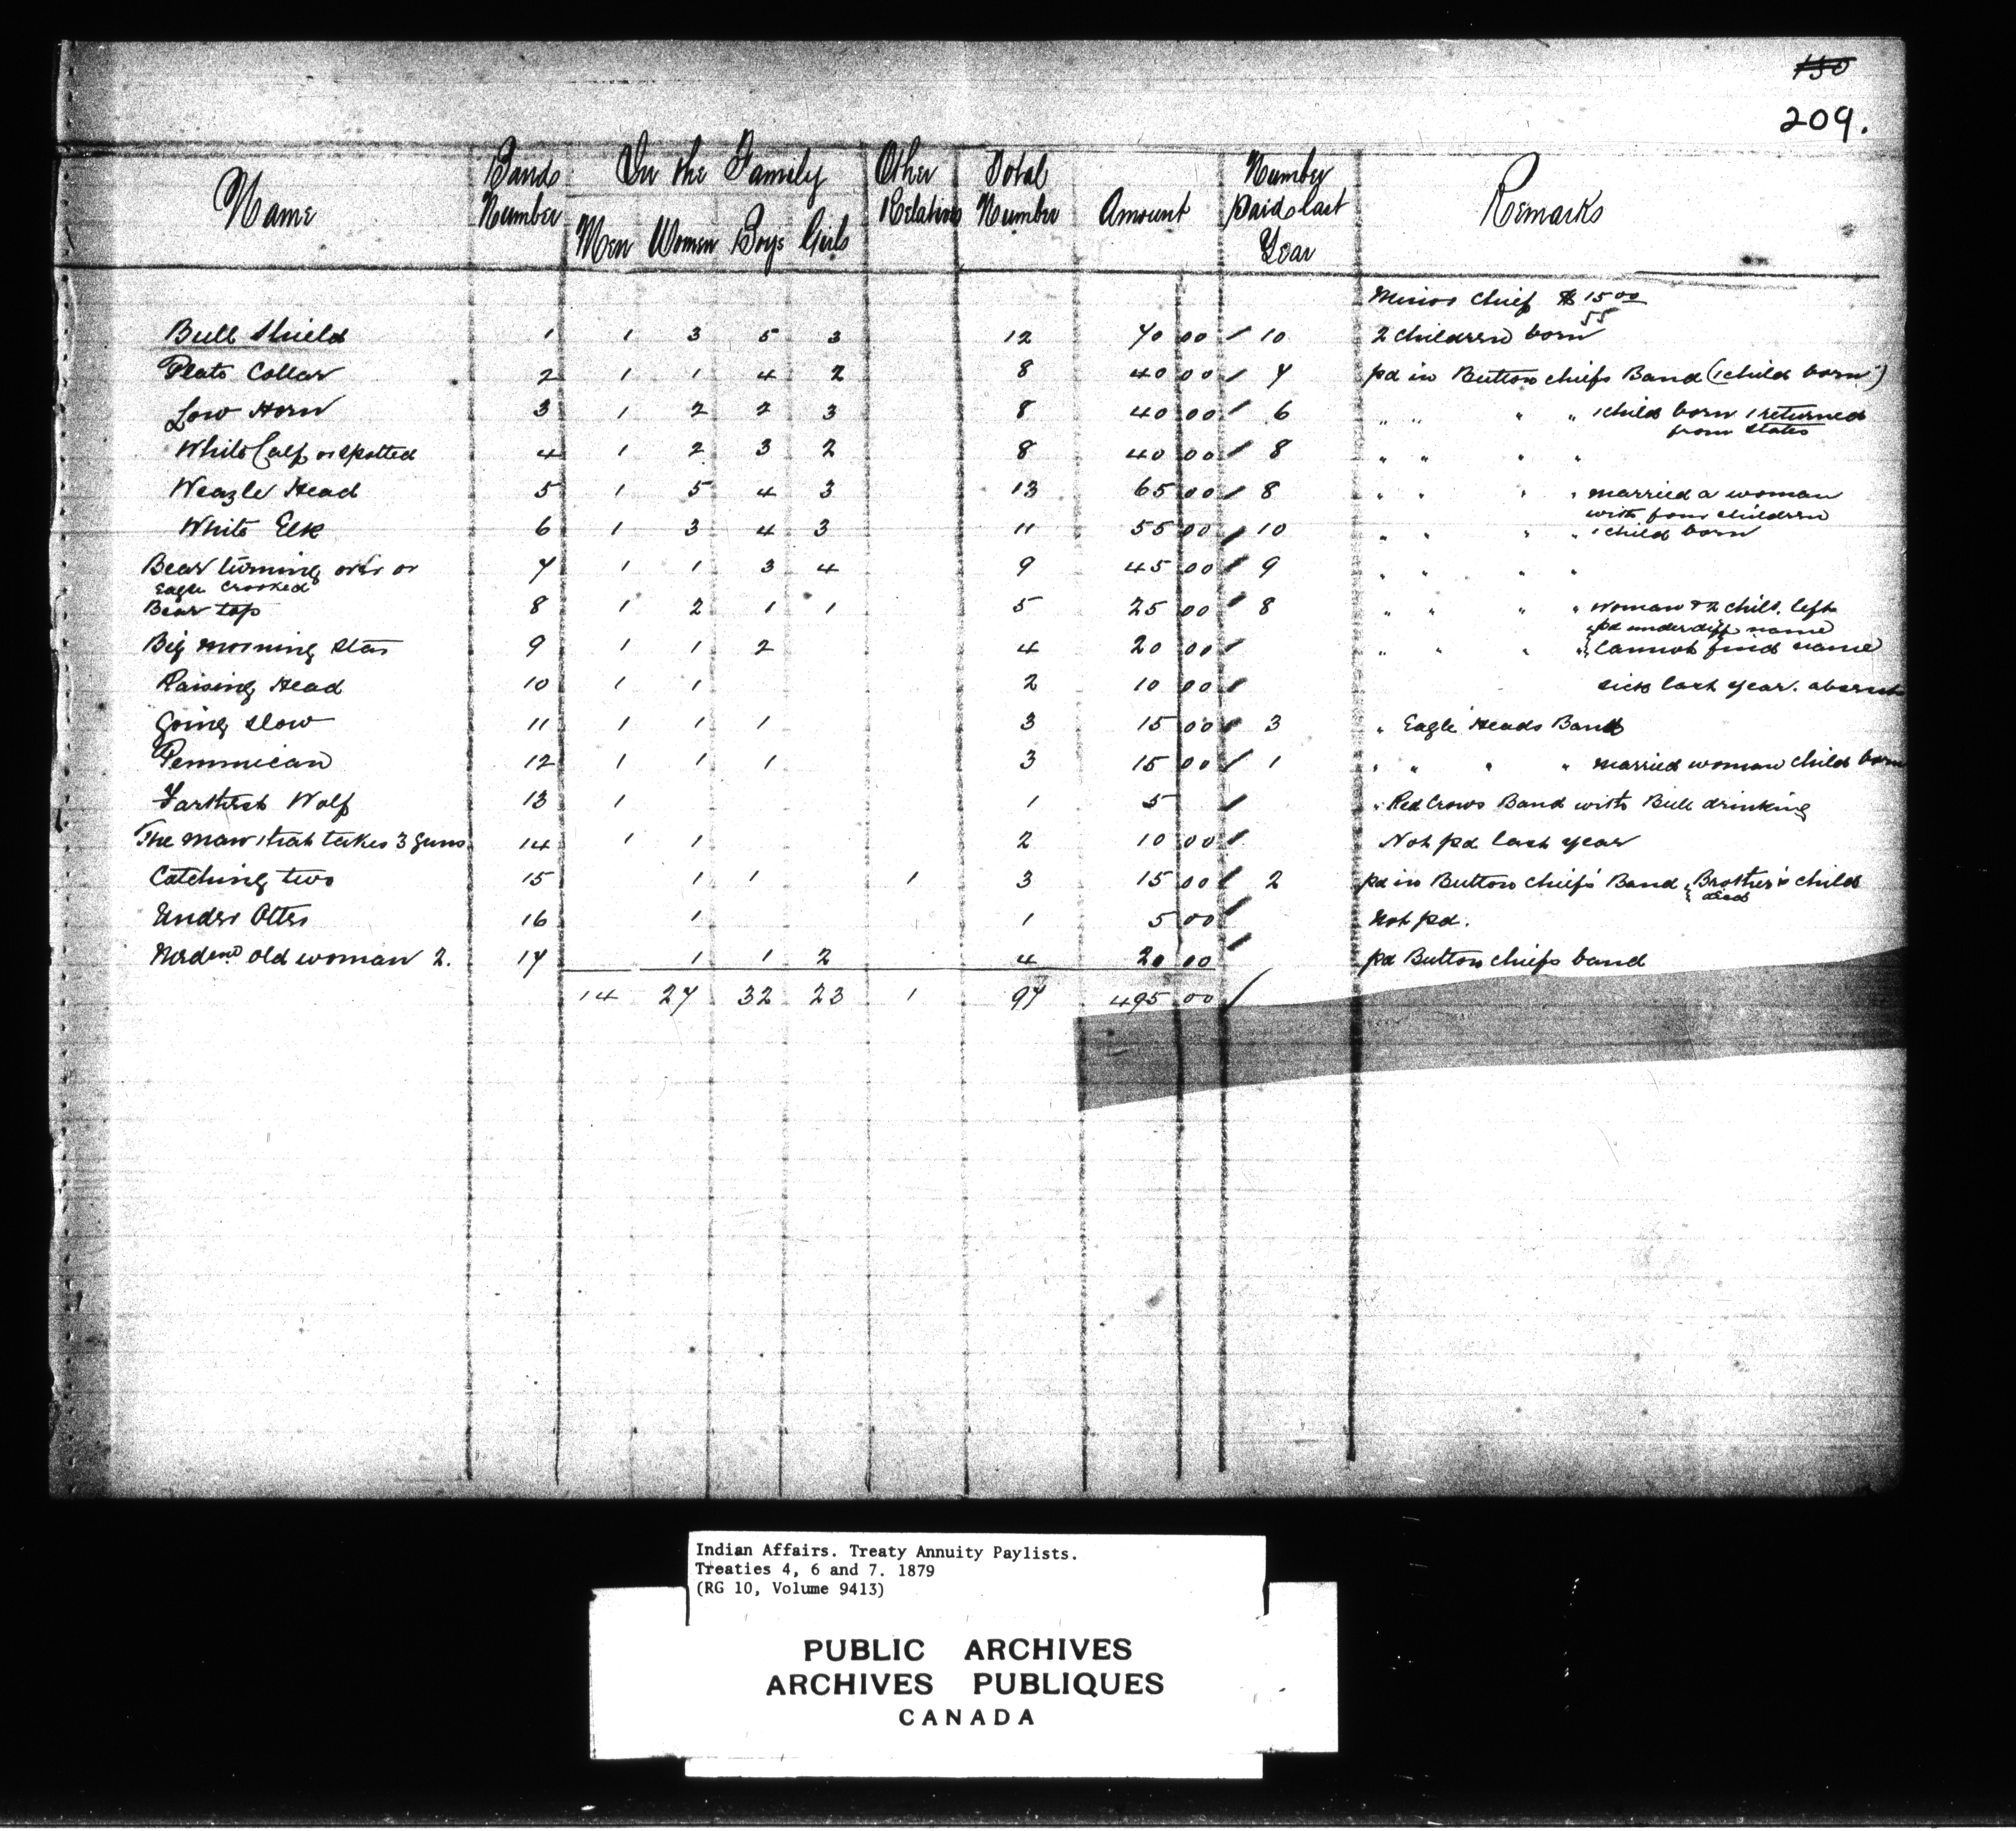 150
209.
Name Band Number In the Family Men Women Boys Girls Other Relatives Total Number Amount Number Paid last Year Remarks
Minor Chief $15 00
Bull Shield 1 1 3 5 3 12 70 00 / 10 2 children born 55
Plate Collar 2 1 1 4 2 8 40 00 / 7 pd in Button chiefs Band (1 child born)
Low Horn 3 1 2 2 3 8 40 00 / 6 " " " " 1 child born 1 returned
from States
White Calf or spotted 4 1 2 3 2 8 40 00 / 8 " " " "
Weazle Head 5 1 5 4 3 13 65 00 / 8 " " " " married a woman
with four children
White Elk 6 1 3 4 3 11 55 00 / 10 " " " " 1 child born
Bear turning over or 7 1 1 3 4 9 45 00 / 9 " " " "
Eagle Crooked
Bear top 8 1 2 1 1 5 25 00 / 8 " " " " woman & 2 chil. left
pd under diff name
Big morning star 9 1 1 2 4 20 00 / " " " " Cannot find name
Raising Head 10 1 1 2 10 00 / sick last year. absent
Going slow 11 1 1 1 3 15 00 / 3 " Eagle Heads Band
Pemmican 12 1 1 1 3 15 00 / 1 " " " " married woman child born
Farthest Wolf 13 1 1 5 / " Red Crows Band with Bull drinking
The man that takes 3 guns 14 1 1 2 10 00 / Not pd last year
Catching two 15 1 1 1 3 15 00 / 2 pd in Button Chief's Band, Brother's child
died
Under Otter 16 1 1 5 00 / Not pd.
old woman 2. 17 1 1 2 4 20 00 / pd Button chiefs band
14 27 32 23 1 97 495 00 /
Indian Affairs. Treaty Annuity Paylists.
Treaties 4, 6 and 7. 1879
(RG 10, Volume 9413)
PUBLIC ARCHIVES
ARCHIVES PUBLIQUES
CANADA